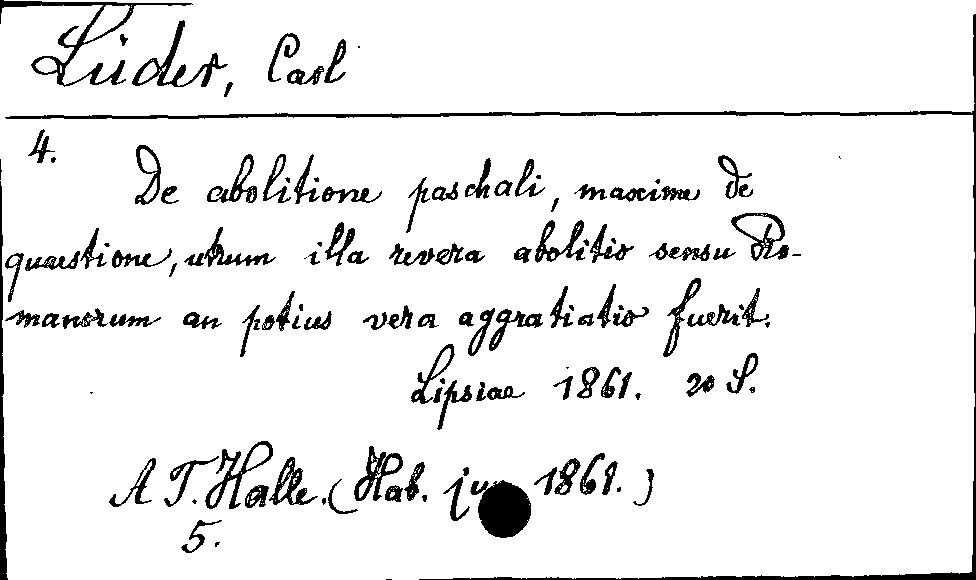 Lüder, Carl
4.
De abolitione paschali, maxime de
quaestione, utrum illa revera abolitio sensu Ro-
manorum an potius vera aggratiatio fuerit.
Lipsiae 1861. 20 S.
A T. Halle. (Hab. jur. 1861.)
5.